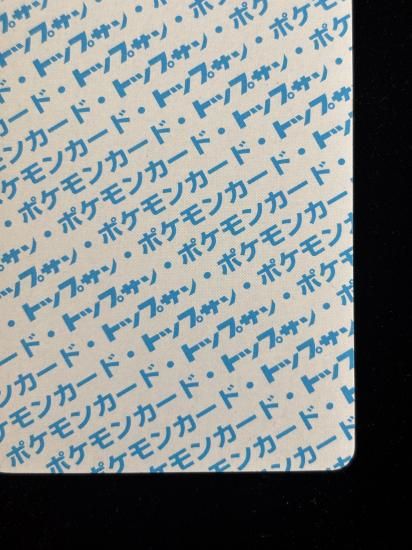 トップサン・ポケモン
トップサン・ポケモンカード
ード・トップサン・ポケモンカ
カード・トップサン・ポケ
ンカード・トップサン・ポ
モンカード・トップサン・
ケモンカード・トップサン
・ポケモンカード・トップサン
・ポケモンカード・
トップサン・ポケモンカード・
トップサン・ポケモンカード
・トップサン・ポケモンカ
ード・トップサン・ポケモ
カード・トップサン・ポ
ンカード・トップサン・
モンカード・トップサン
ポケモンカード・トップ
ポケモンカード・ト
ポケモンカード